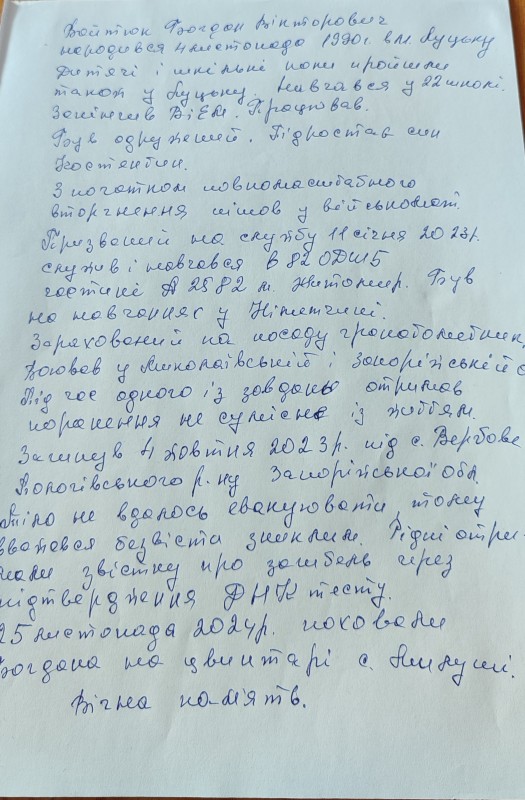 Войтюк Богдан Вікторович
народився 4 листопада 1990 г. в м. Луцьку
Дитячі і шкільні роки пройшли
також у Луцьку. Навчався у 22 школі.
Закінчив ВіЕМ. Працював.
Був одружений. Підростав син
Костянтин.
З початком повномасштабного
вторгнення пішов у військомат.
Призваний на службу 11 січня 2023 р.
служив і навчався в 82 ОДШБ
частині А 2582 м. Житомир. Був
на навчаннях у Німеччині.
Зарахований на посаду гранатометник,
Воював у Миколаївській і запорізькій о
Під час одного із завдань отримав
поранення не сумісне із життям.
Загинув 4 жовтня 2023 р. під с. Вербове
Пологівського р-ну Запорізької обл.
Тіло не вдалось евакуювати, тому
вважався безвісти зниклим. Рідні отри-
мали звістку про загибель через
підтвердження ДНК тесту.
25 листопада 2024 р. поховали
Богдана на цвинтарі с. Липуші.
Вічна пам'ять.